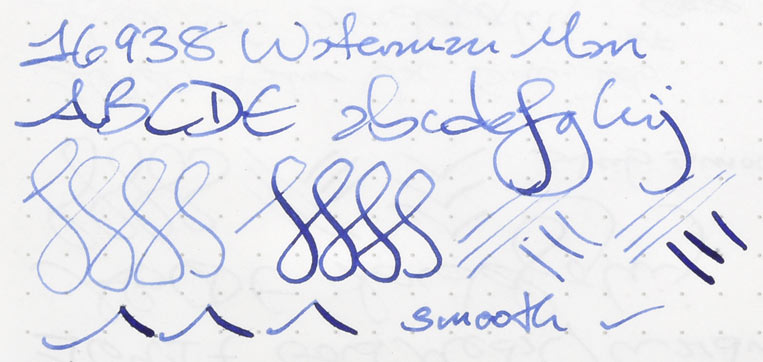 16938 Waterman Man
ABCDE abcdefghij
smooth